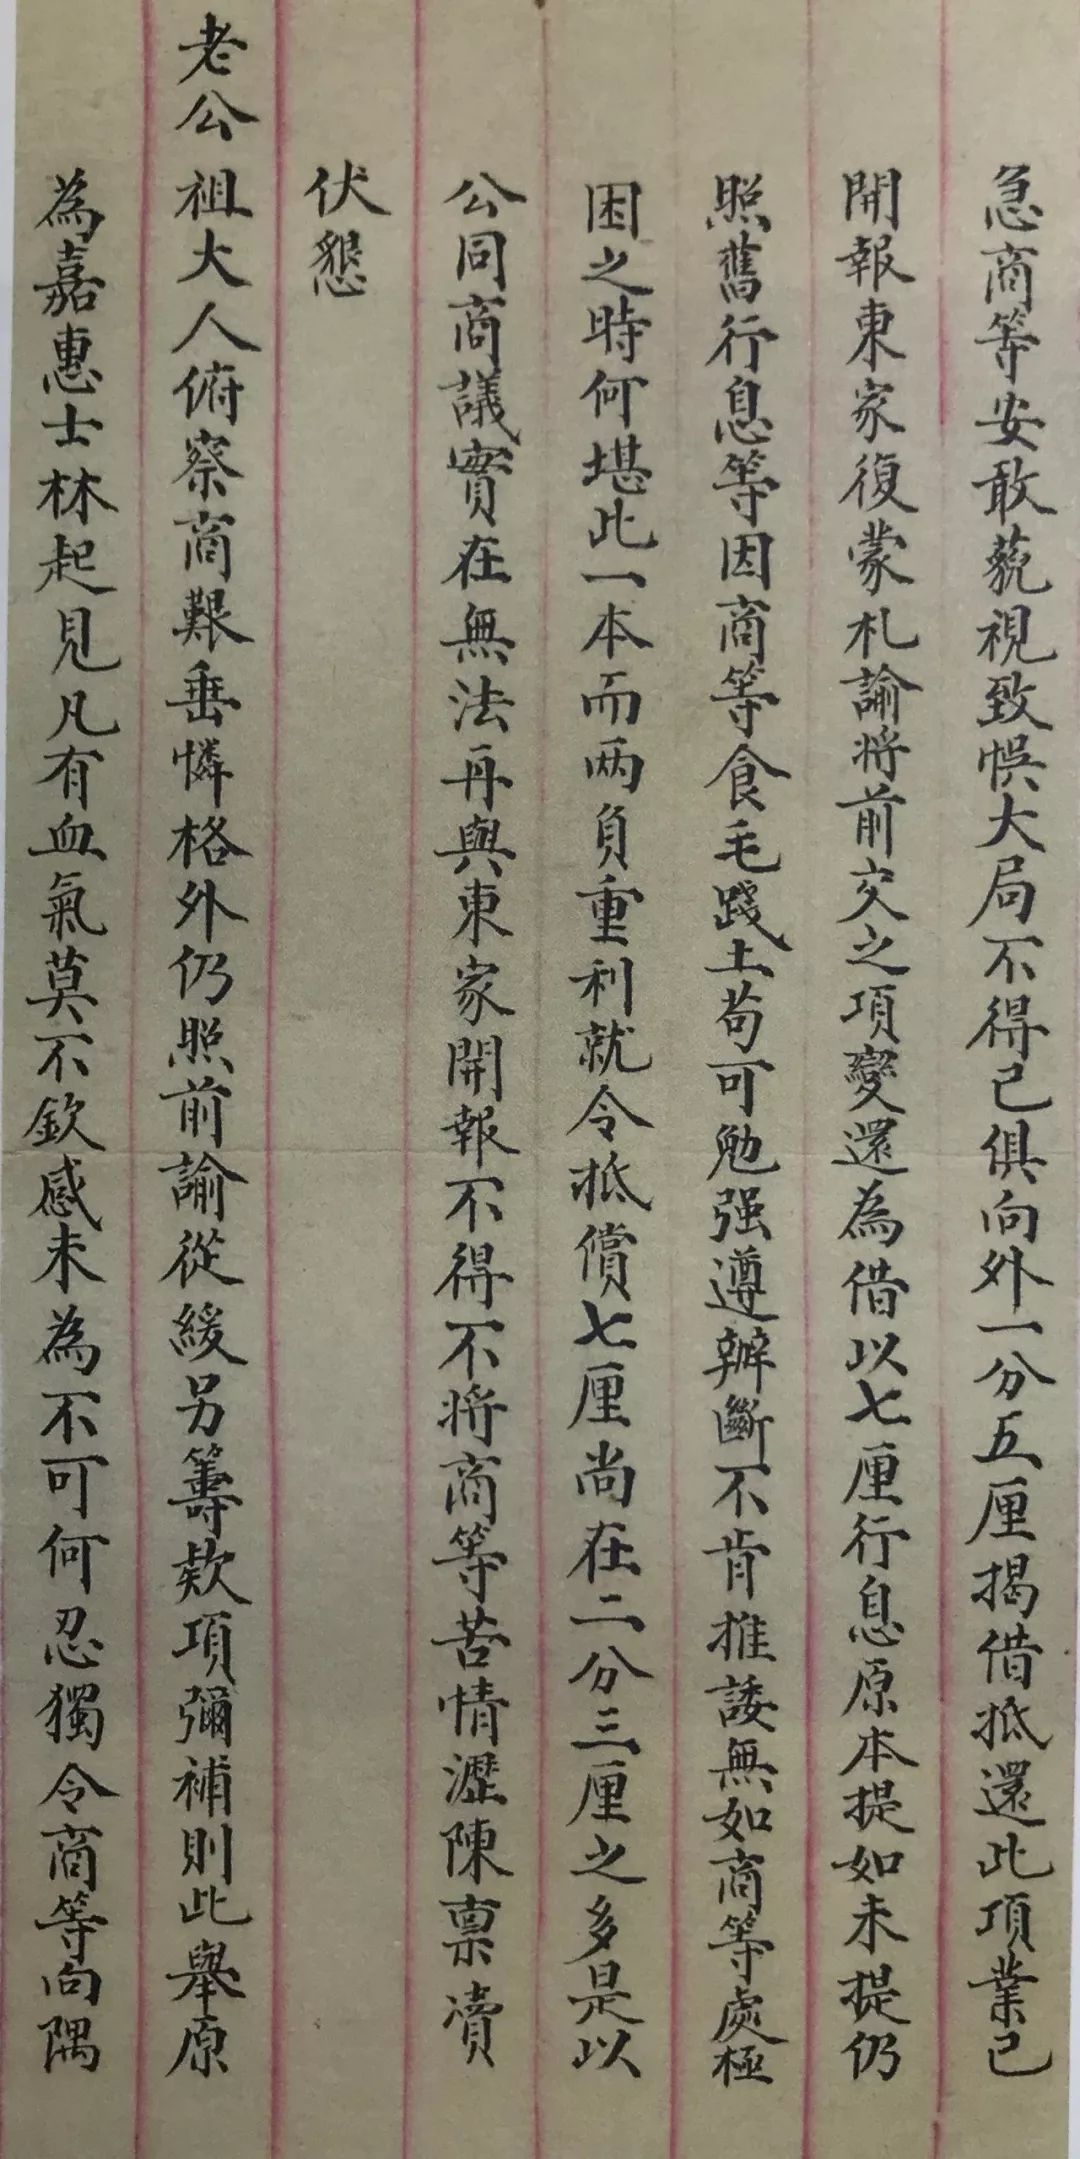 急商等安敢藐視致悞大局不得已俱向外一分五厘揭借抵還此項業已
開報東家復蒙札諭將前交之項變還為借以七厘行息原本提如未提仍
照舊行息等因商等食毛踐土苟可勉强遵辦斷不肯推諉無如商等處極
困之時何堪此一本而两負重利就令抵償七厘尚在二分三厘之多是以
公同商議實在無法再與東家開報不得不将商等苦情瀝陳禀凟
伏懇
老公祖大人俯察商艱垂憐格外仍照前諭從緩另籌欵項彌補則此舉原
為嘉惠士林起見凡有血氣莫不欽感未為不可何忍獨令商等向隅